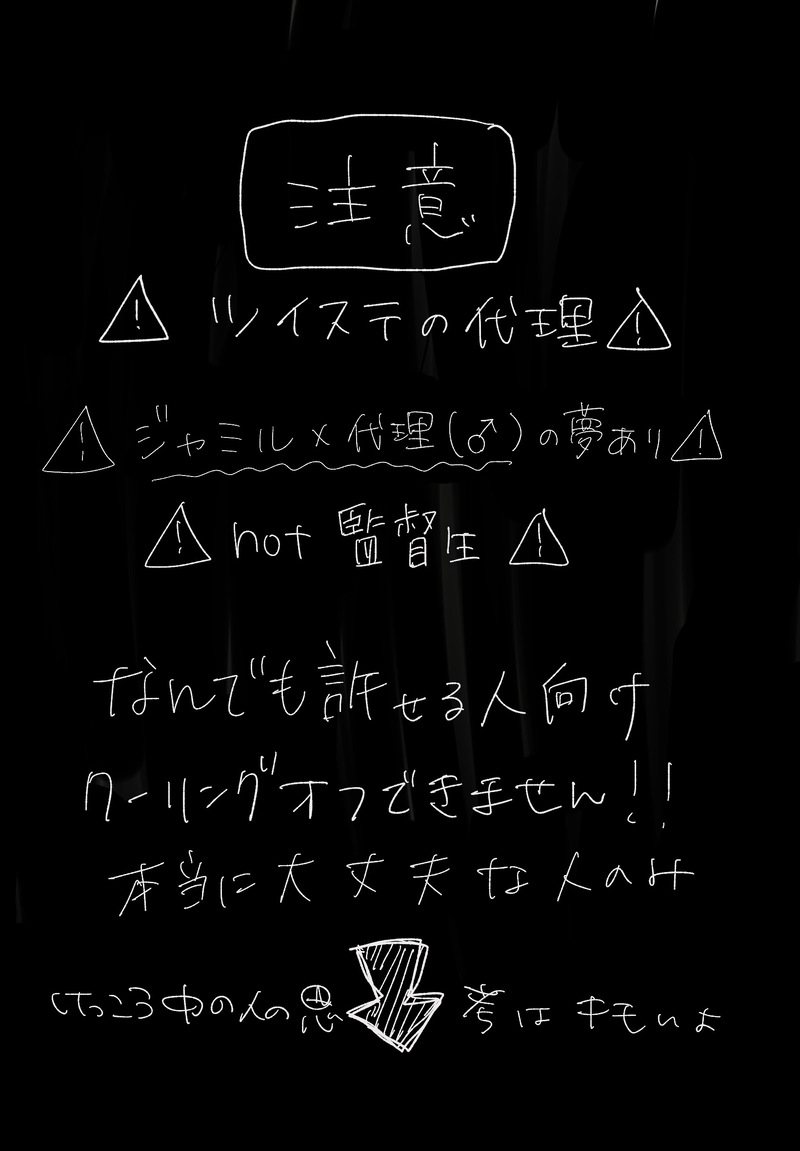 注意
⚠ ツイステの代理 ⚠
⚠ ジャミル×代理(♂)の夢あり ⚠
⚠ not 監督生 ⚠
なんでも許せる人向け
クーリングオフできません!!
本当に大丈夫な人のみ
けっこう中の人の思考はキモいよ